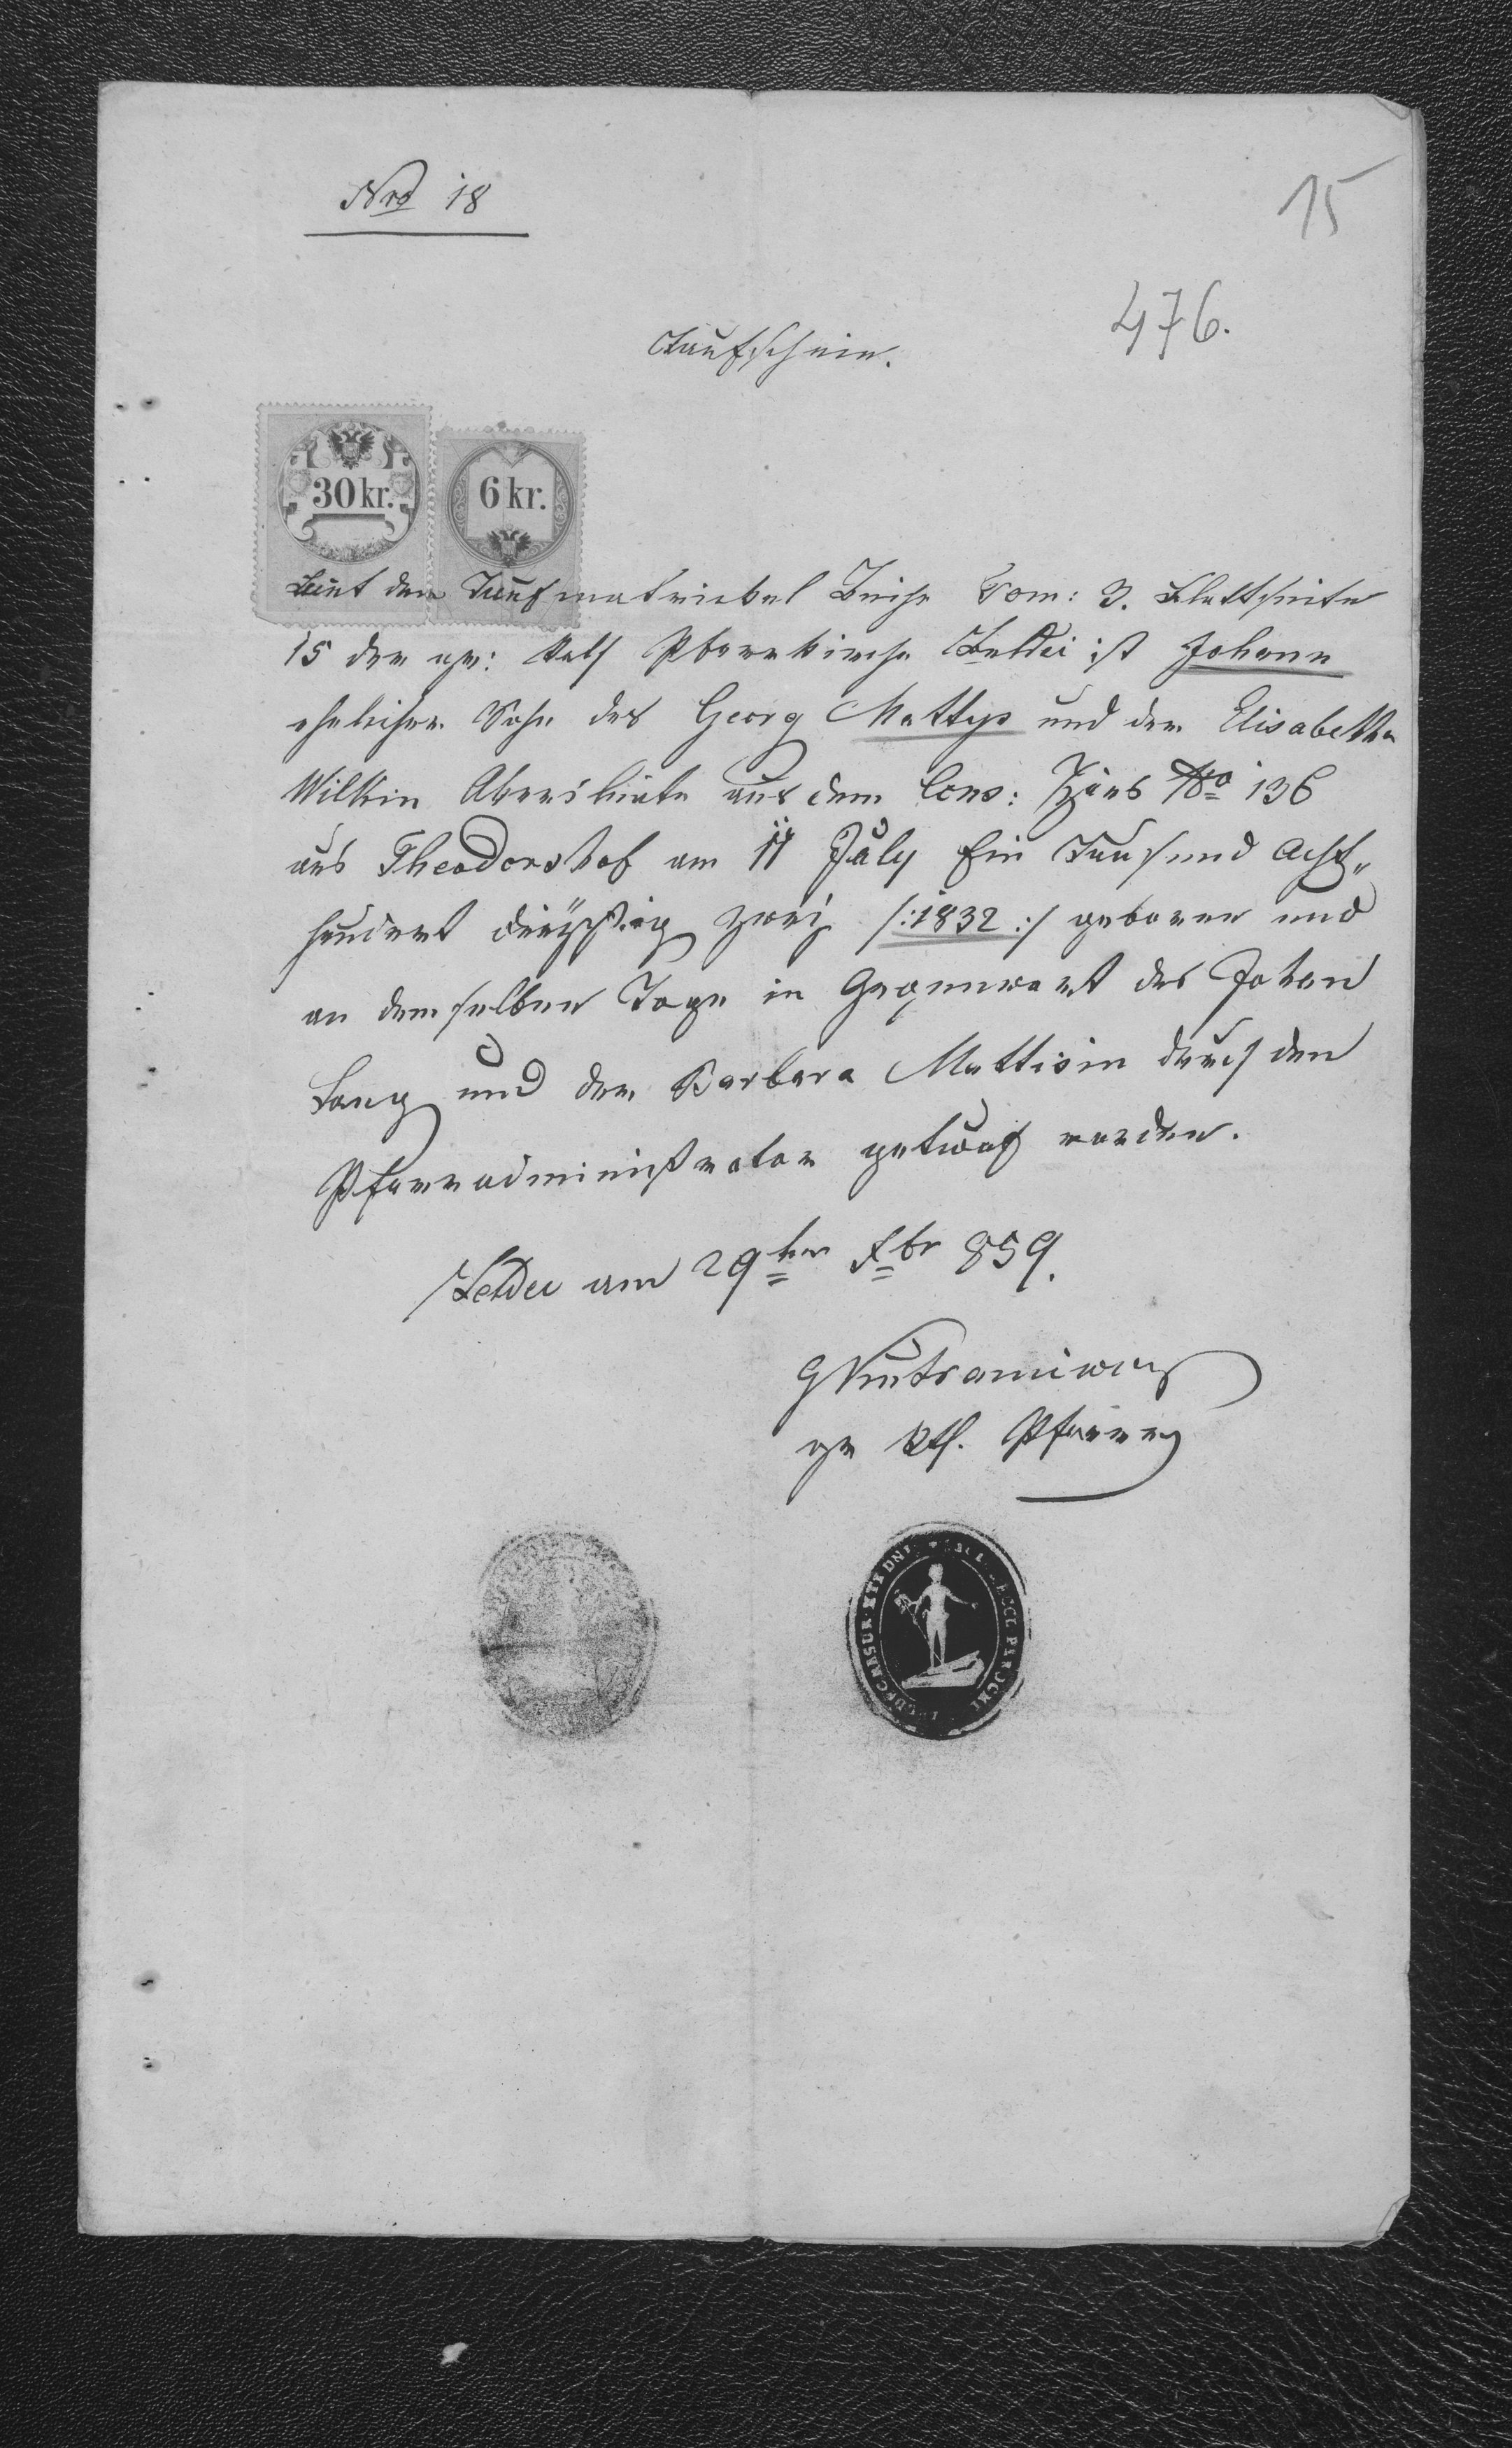 Nro 18
15
476.
Taufschein.
30 kr.
6 kr.
Laut der Taufmatrickel Buche Tom: 3. Blattseite
15 der gr: kath Pfarrkirche Zeldei ist Johann
ehelicher Sohn des Georg Mattys und der Elisabetha
aus dem Cons: No 136
aus Theodorshof am 11 July Ein Tausend Acht„
hundert dreyssig zwei /:1832:/ geboren und
an demselben Tage in Gegenwart des Johan
Lang und der Barbara Mattisin durch den
Pfarradministrator getauft worden.
Zeldei am 29ten 859.
gr kth. Pfarrer